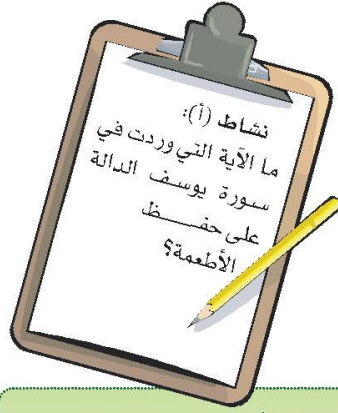 نشاط (أ):
ما الآية التي وردت في
سورة يوسف الدالة
على حفظ
الأطعمة؟